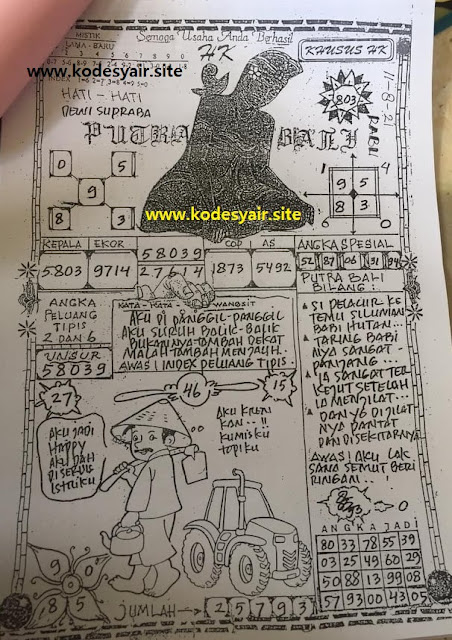 MISTIK
Semoga Usaha Anda Berhasil
HK
KHUSUS HK
www.kodesyair.site
HATI - HATI
DEWI SUPRABA
803
11-8-21
RABU
PUTRA BALI
0 5
9
8 3
1 4
9 5
8 3
0
www.kodesyair.site
KEPALA EKOR
5803 9714
58039
27614
COP AS
1873 5492
ANGKA SPESIAL
52 87 06 31 94
ANGKA
PELUANG
TIPIS
2 DAN 6
UNSUR
58039
KATA - KATA WANGSIT
AKU DI PANGGIL-PANGGIL
AKU SURUH BOLIK-BALIK
BUKANNYA TAMBAH DEKAT
MALAH TAMBAH MENJAUH.
AWAS! INDEX PELUANG TIPIS.
PUTRA BALI
BILANG:
SI PELACUR KE
TEMU SILUMAN
BABI HUTAN...
TARING BABI
NYA SANGAT
PANJANG...
IA SANGAT TER
KEJUT SETELAH
IA MENJILAT...
DAN 46 DIJILAT
NYA PANTAT
DAN DISEKITARNYA
AWAS! AKU LAK
SANA SEMUT BERI
RINGAN..!
27
46
15
AKU JADI
HAPPY
AKU DAH
DI SERUH
ISTRIKU
AKU KREN
KAN..!!
KUMISKU
TOPIKU
0
ANGKA JADI
80 33 78 55 39
03 25 49 60 29
50 88 13 99 08
57 93 00 43 05
9 0
8 5
JUMLAH → 2 5 7 9 3